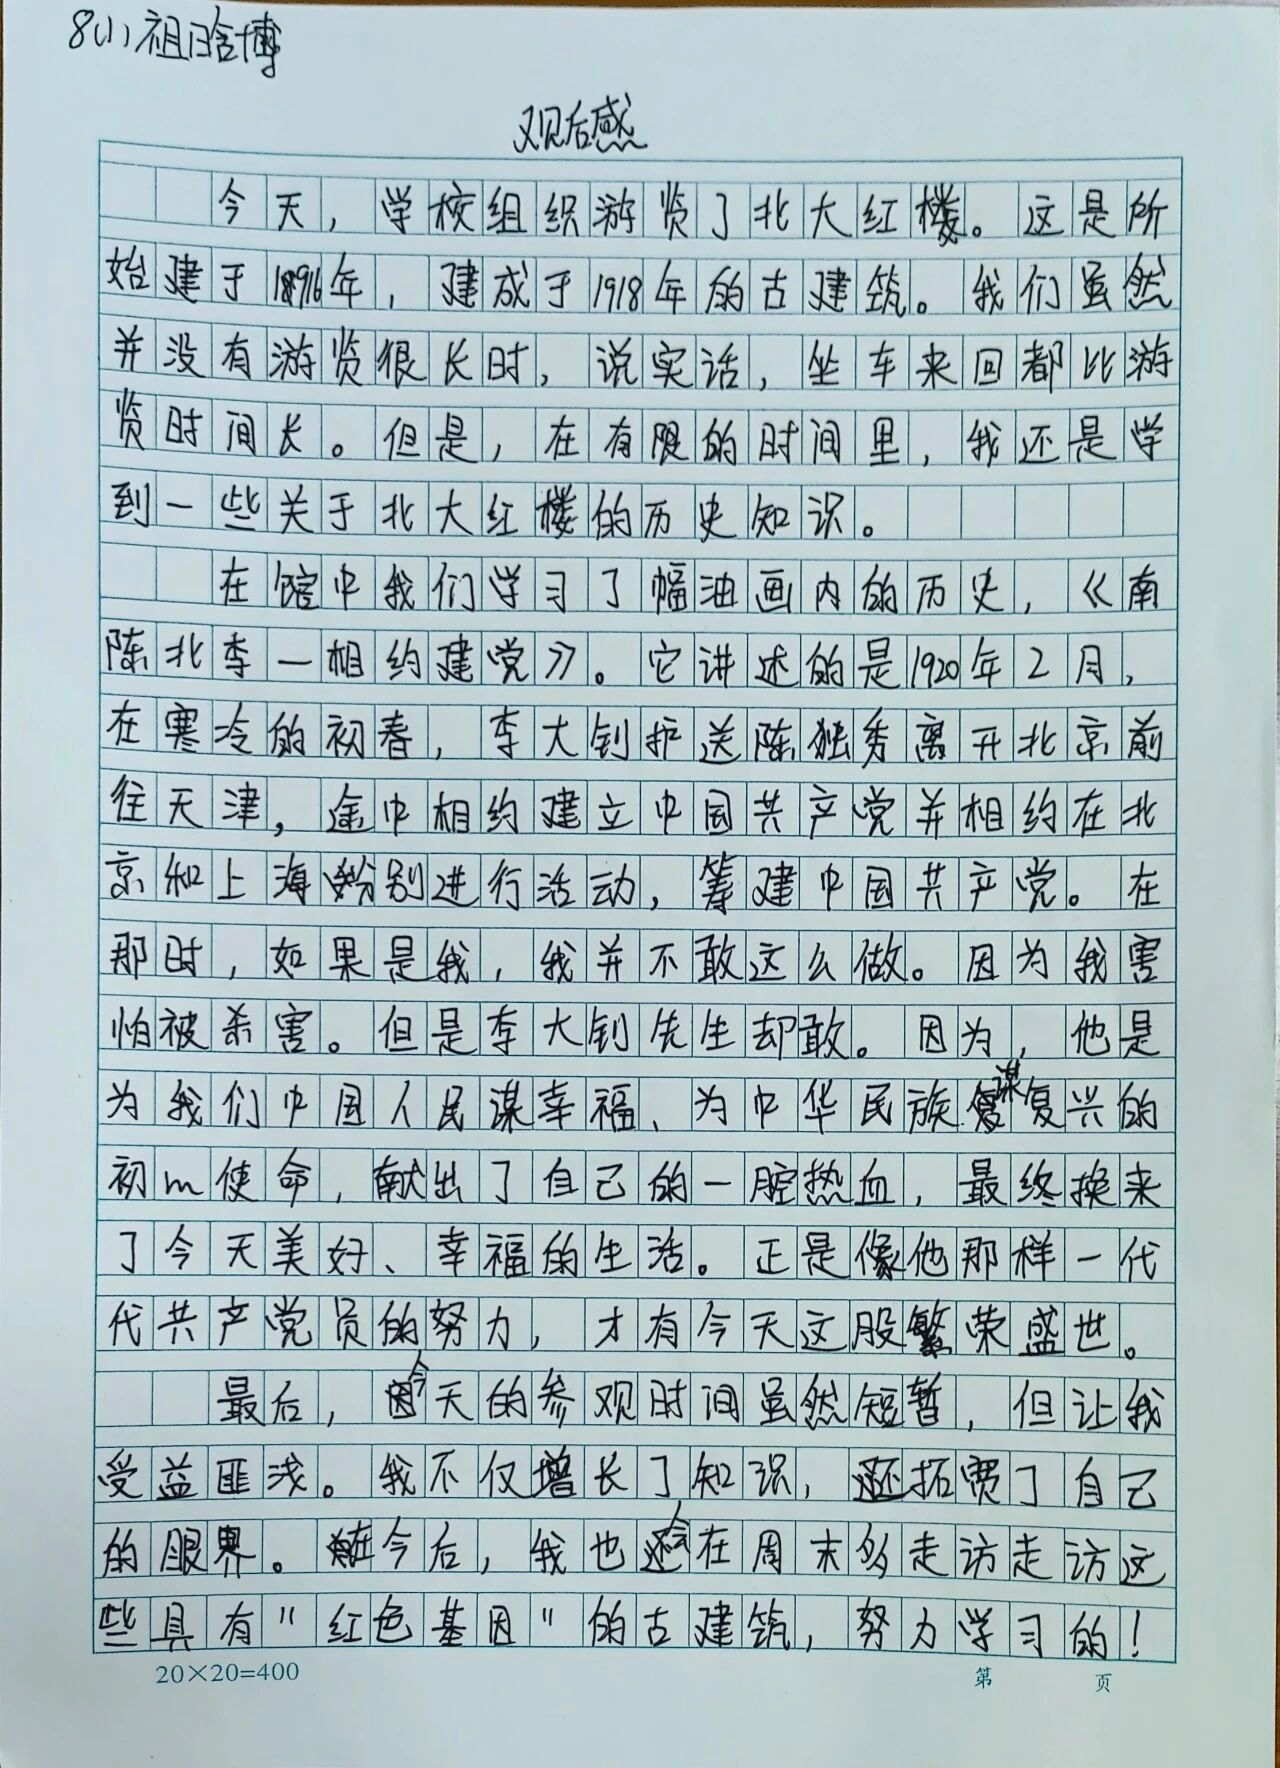 8(1)祖晗博
观后感
今天，学校组织游览了北大红楼。这是所
始建于1916年，建成于1918年的古建筑。我们虽然
并没有游览很长时，说实话，坐车来回都比游
览时间长。但是，在有限的时间里，我还是学
到一些关于北大红楼的历史知识。
在馆中我们学习了幅油画内的历史，《南
陈北李—相约建党》。它讲述的是1920年2月，
在寒冷的初春，李大钊护送陈独秀离开北京前
往天津，途中相约建立中国共产党并相约在北
京和上海分别进行活动，筹建中国共产党。在
那时，如果是我，我并不敢这么做。因为我害
怕被杀害。但是李大钊先生却敢。因为，他是
为我们中国人民谋幸福、为中华民族谋复兴的
初心使命，献出了自己的一腔热血，最终换来
了今天美好、幸福的生活。正是像他那样一代
代共产党员的努力，才有今天这股繁荣盛世。
最后，今天的参观时间虽然短暂，但让我
受益匪浅。我不仅增长了知识，还拓宽了自己
的眼界。在今后，我也会在周末多走访走访这
些具有"红色基因"的古建筑，努力学习的！
20×20=400
第 页